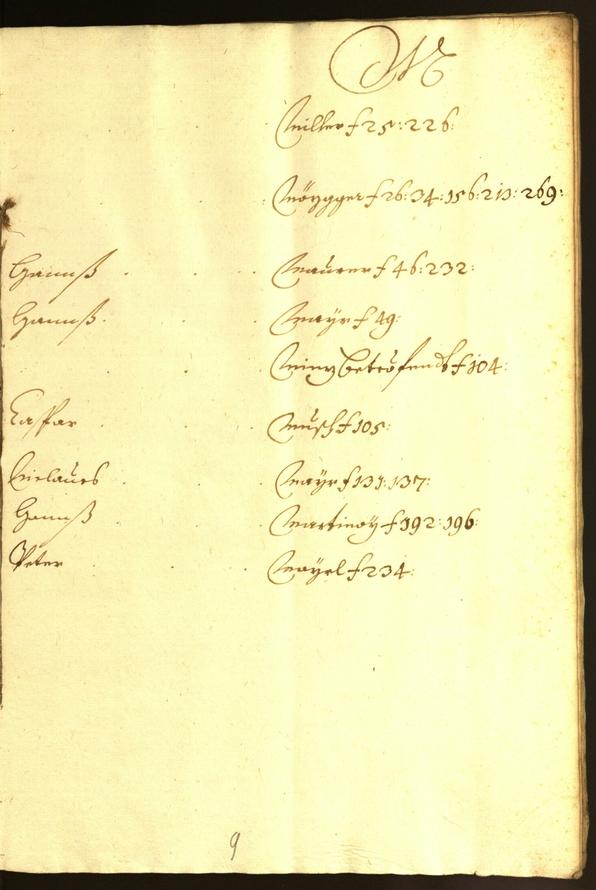 M
Miller f 25: 226:
Möygger f 26: 34: 156: 213: 269:
Hannß Maurer f 46: 232:
Hannß Mayr f 49:
Münz betröfendt f 104:
Caspar f 105:
Niclaues Mayr f 131: 137:
Hannß Martinoy f 192: 196:
Peter Mayrl f 234:
9